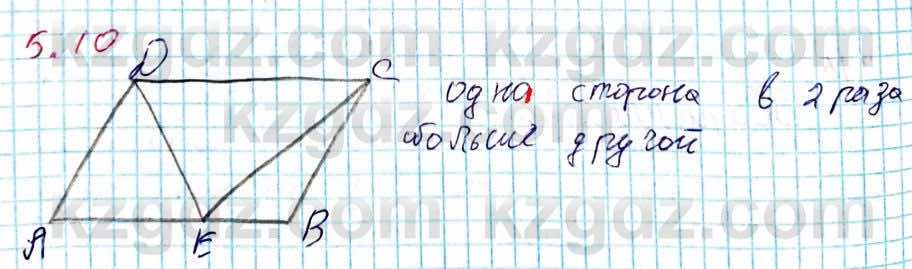 5.10
D C
одна сторона в 2 раза
больше другой
A E B
kzgdz.com kzgdz.com
kzgdz.com kzgdz.com
kzgdz.com kzgdz.com